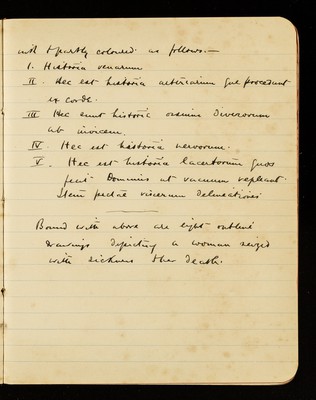 and & partly coloured as follows:—
I. Historia venarum
II. Hec est historia arteriarum que procedunt
ex corde.
III Hec sunt historie ossium diversorum
ab invicem.
IV. Hec est historia nervorum.
V. Hec est historia lacertorum quos
fecit Dominus ut vacuum repleant.
Item picture viscerum delineationes
Bound with above are eight outline
drawings depicting a woman seized
with sickness & her death.